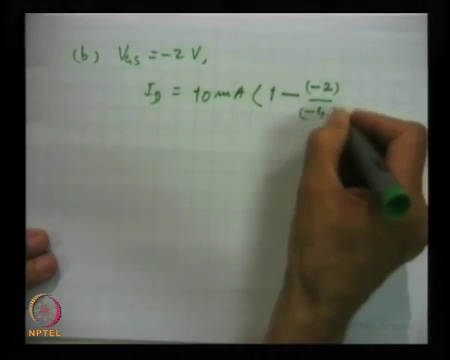 (b) V_GS = -2 V,
I_D = 10 mA ( 1 - (-2)/(-4)
NPTEL